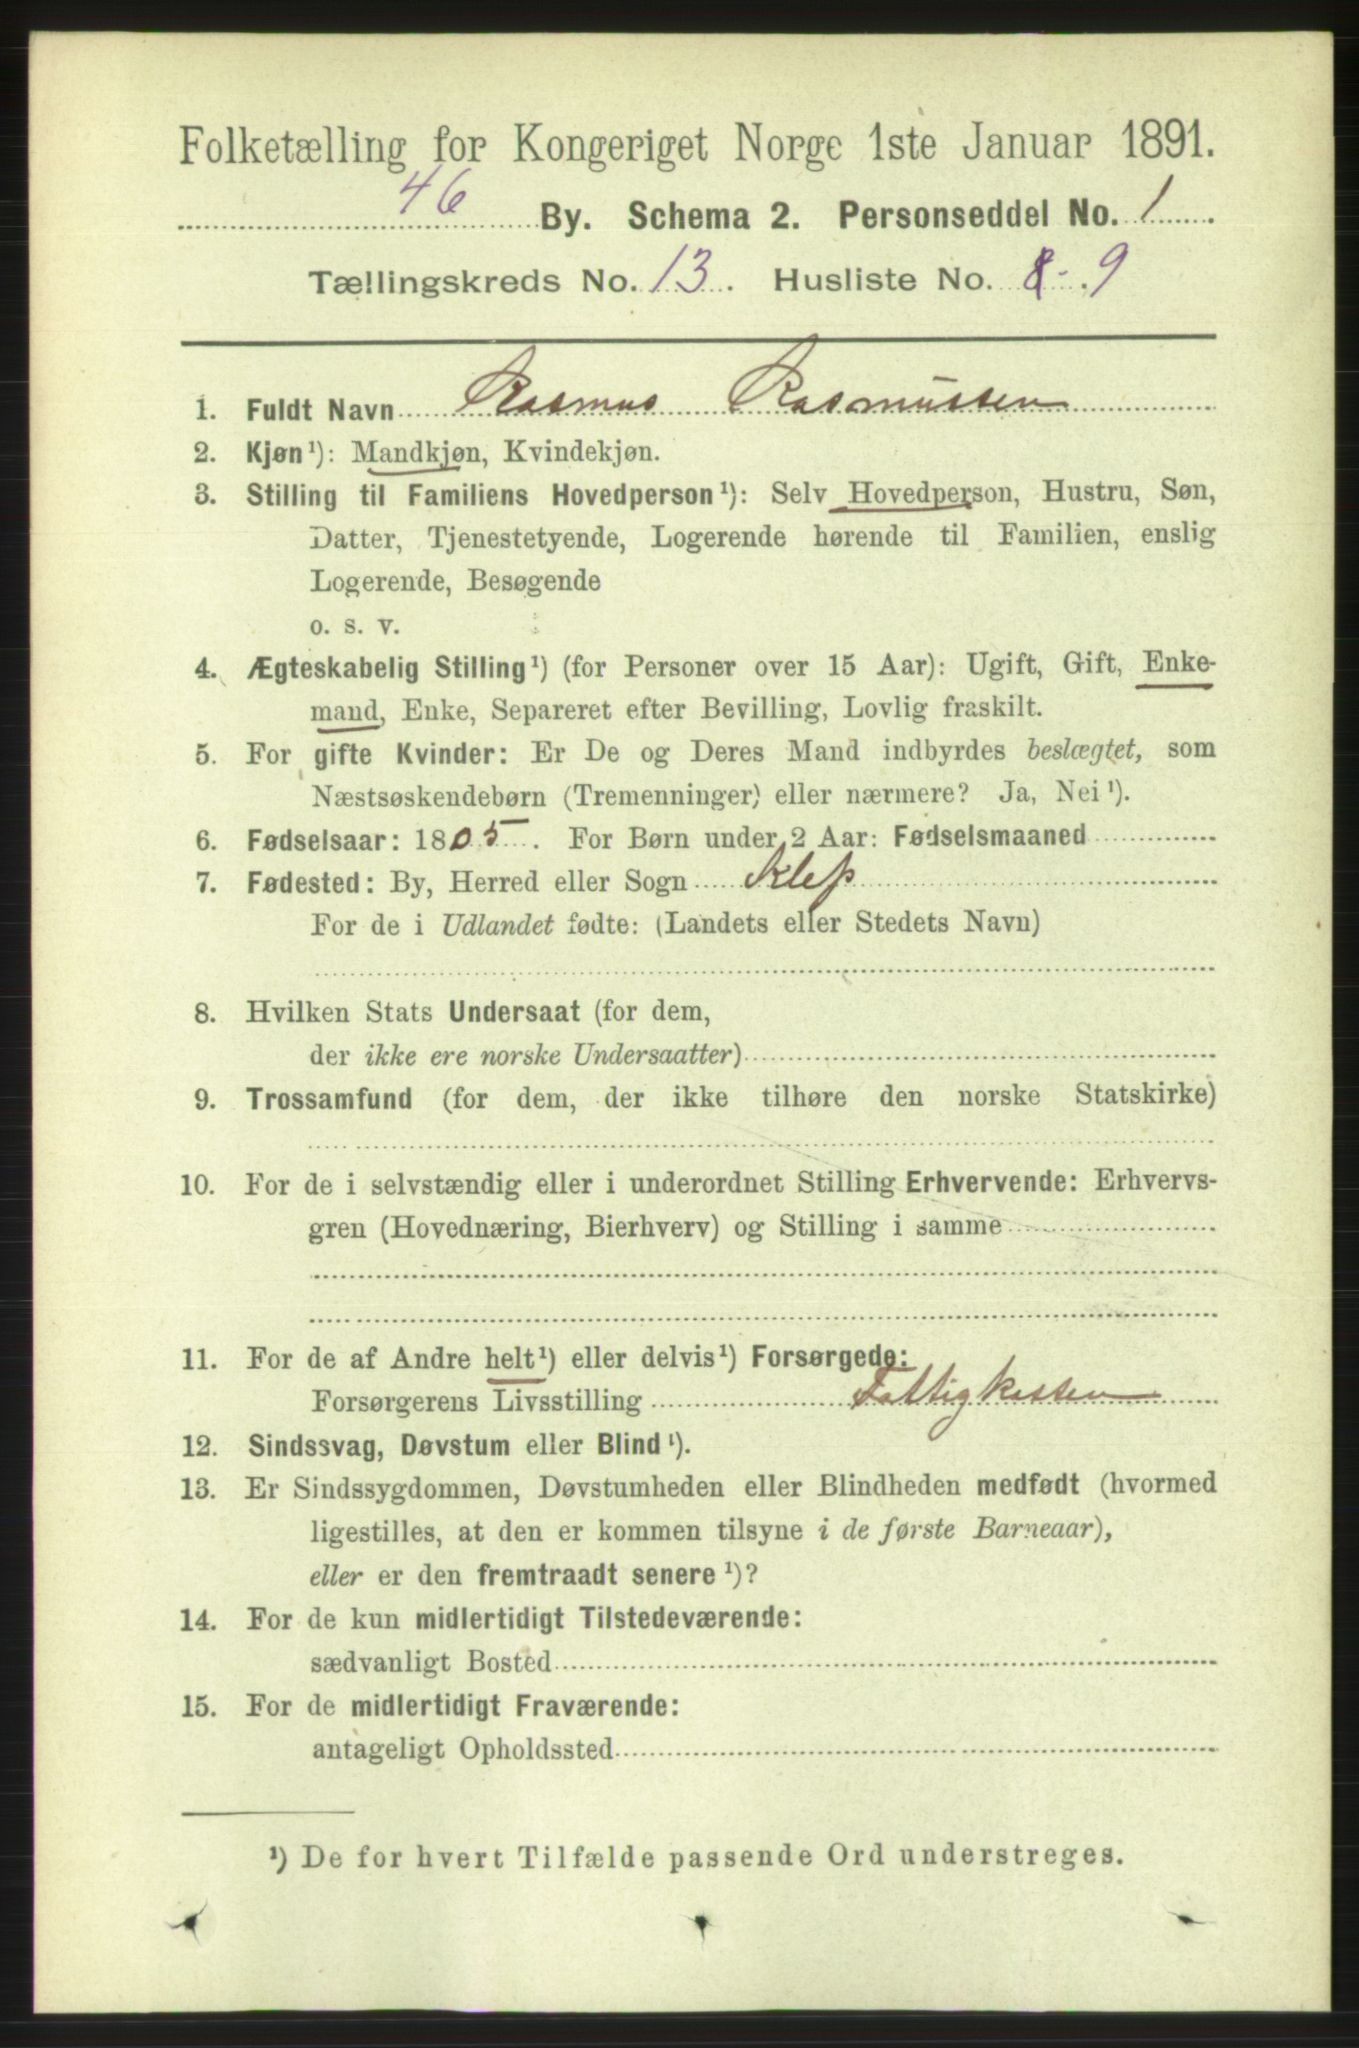 Folketælling for Kongeriget Norge 1ste Januar 1891.
46 By. Schema 2. Personseddel No. 1.
Tællingskreds No. 13. Husliste No. 8-9
1. Fuldt Navn Rasmus Rasmussen
2. Kjøn¹): Mandkjøn, Kvindekjøn.
3. Stilling til Familiens Hovedperson¹): Selv Hovedperson, Hustru, Søn,
Datter, Tjenestetyende, Logerende hørende til Familien, enslig
Logerende, Besøgende
o. s. v.
4. Ægteskabelig Stilling¹) (for Personer over 15 Aar): Ugift, Gift, Enke-
mand, Enke, Separeret efter Bevilling, Lovlig fraskilt.
5. For gifte Kvinder: Er De og Deres Mand indbyrdes beslægtet, som
Næstsøskendebørn (Tremenninger) eller nærmere? Ja, Nei¹).
6. Fødselsaar: 1805. For Børn under 2 Aar: Fødselsmaaned
7. Fødested: By, Herred eller Sogn Klep
For de i Udlandet fødte: (Landets eller Stedets Navn)
8. Hvilken Stats Undersaat (for dem,
der ikke ere norske Undersaatter)
9. Trossamfund (for dem, der ikke tilhøre den norske Statskirke)
10. For de i selvstændig eller i underordnet Stilling Erhvervende: Erhvervs-
gren (Hovednæring, Bierhverv) og Stilling i samme
11. For de af Andre helt¹) eller delvis¹) Forsørgede:
Forsørgerens Livsstilling Fattigkassen
12. Sindssvag, Døvstum eller Blind¹).
13. Er Sindssygdommen, Døvstumheden eller Blindheden medfødt (hvormed
ligestilles, at den er kommen tilsyne i de første Barneaar),
eller er den fremtraadt senere¹)?
14. For de kun midlertidigt Tilstedeværende:
sædvanligt Bosted
15. For de midlertidigt Fraværende:
antageligt Opholdssted
¹) De for hvert Tilfælde passende Ord understreges.